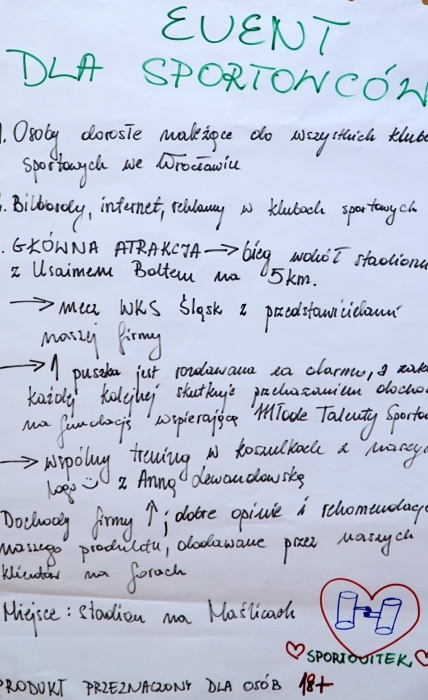 EVENT
DLA SPORTOWCÓW
1. Osoby dorosłe należące do wszystkich klub
sportowych we Wrocławiu
. Bilbordy, internet, reklamy w klubach sportowych
. GŁÓWNA ATRAKCJA → bieg wokół stadionu
z Usainem Boltem na 5km.
→ mecz WKS Śląsk z przedstawicielami
naszej firmy
→ 1 puszka jest rozdawana za darmo, a zak
każdej kolejnej skutkuje przekazaniem docho
na fundację wspierającą Młode Talenty Sporto
→ wspólny trening w koszulkach z naszy
logo☺ z Anną Lewandowską
Dochody firmy ↑; dobre opinie i rekomendacj
naszego produktu, dodawane przez naszych
klientów na forach
Miejsce : Stadion na Maślicach
♡ SPORTOWITEK, ♡
PRODUKT PRZEZNACZONY DLA OSÓB 18+